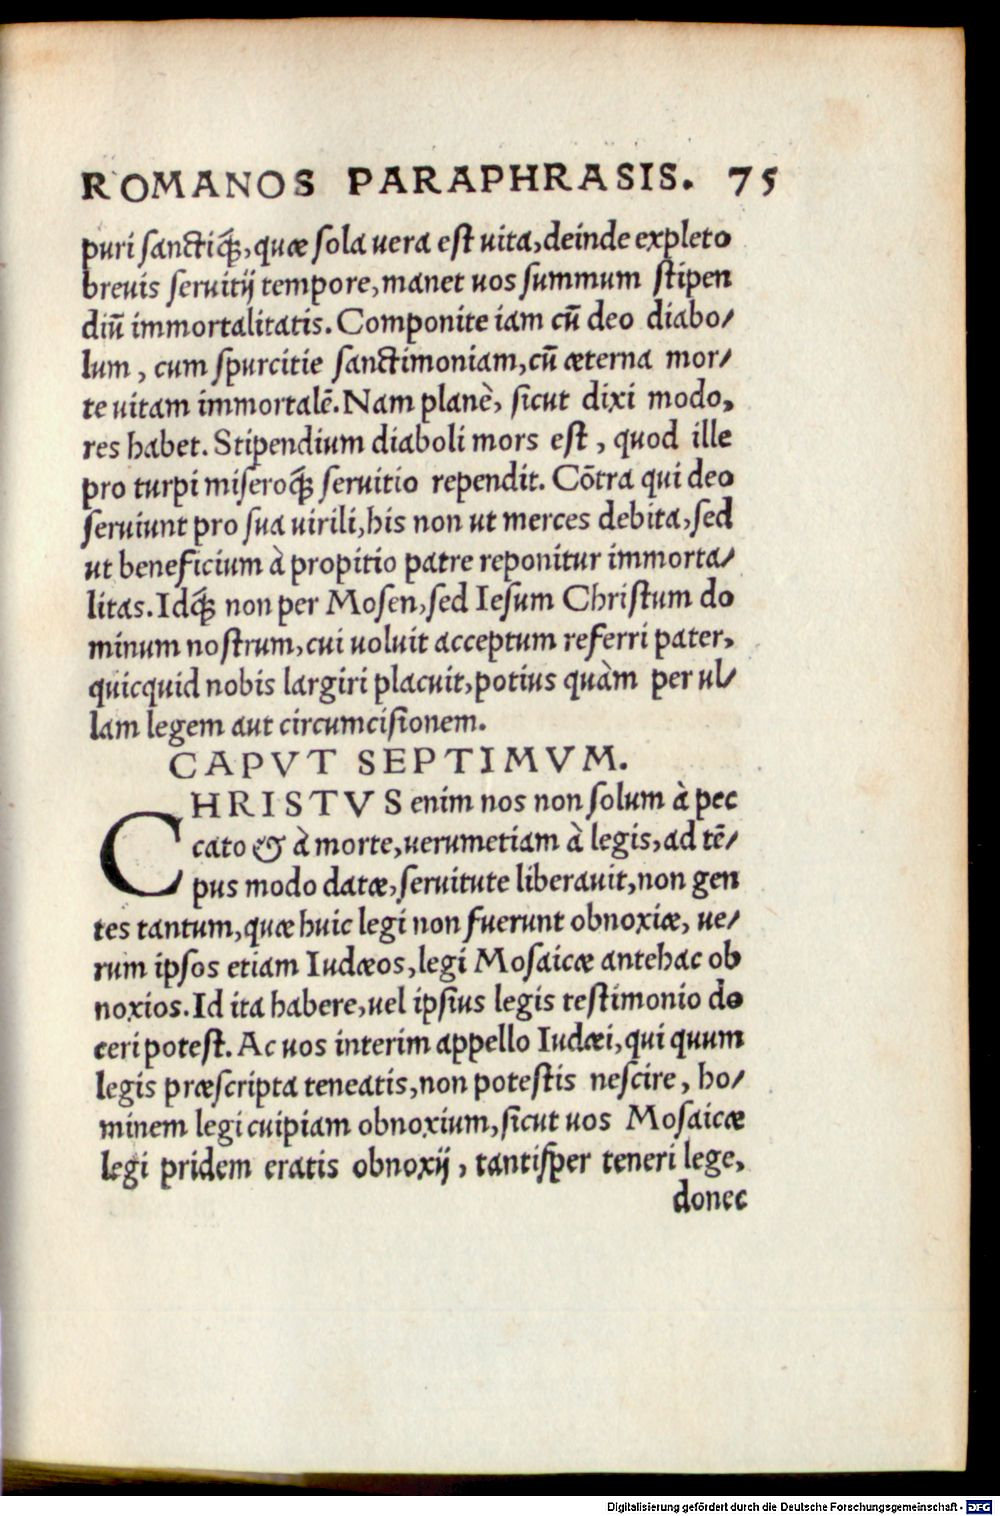 ROMANOS PARAPHRASIS. 75
puri sanctiq́;, quæ sola uera est uita, deinde expleto
breuis seruitij tempore, manet uos summum stipen
diū immortalitatis. Componite iam cū deo diabo/
lum, cum spurcitie sanctimoniam, cū æterna mor/
te uitam immortalē. Nam planè, sicut dixi modo,
res habet. Stipendium diaboli mors est, quod ille
pro turpi miseroq́; seruitio rependit. Cōtra qui deo
seruiunt pro sua uirili, his non ut merces debita, sed
ut beneficium à propitio patre reponitur immorta/
litas. Idq́; non per Mosen, sed Iesum Christum do
minum nostrum, cui uoluit acceptum referri pater,
quicquid nobis largiri placuit, potius quàm per ul/
lam legem aut circumcisionem.
CAPVT SEPTIMVM.
CHRISTVS enim nos non solum à pec
cato & à morte, uerumetiam à legis, ad tē/
pus modo datæ, seruitute liberauit, non gen
tes tantum, quæ huic legi non fuerunt obnoxiæ, ue/
rum ipsos etiam Iudæos, legi Mosaicæ antehac ob
noxios. Id ita habere, uel ipsius legis testimonio do
ceri potest. Ac uos interim appello Iudæi, qui quum
legis præscripta teneatis, non potestis nescire, ho/
minem legi cuipiam obnoxium, sicut uos Mosaicæ
legi pridem eratis obnoxij, tantisper teneri lege,
donec
Digitalisierung gefördert durch die Deutsche Forschungsgemeinschaft - DFG